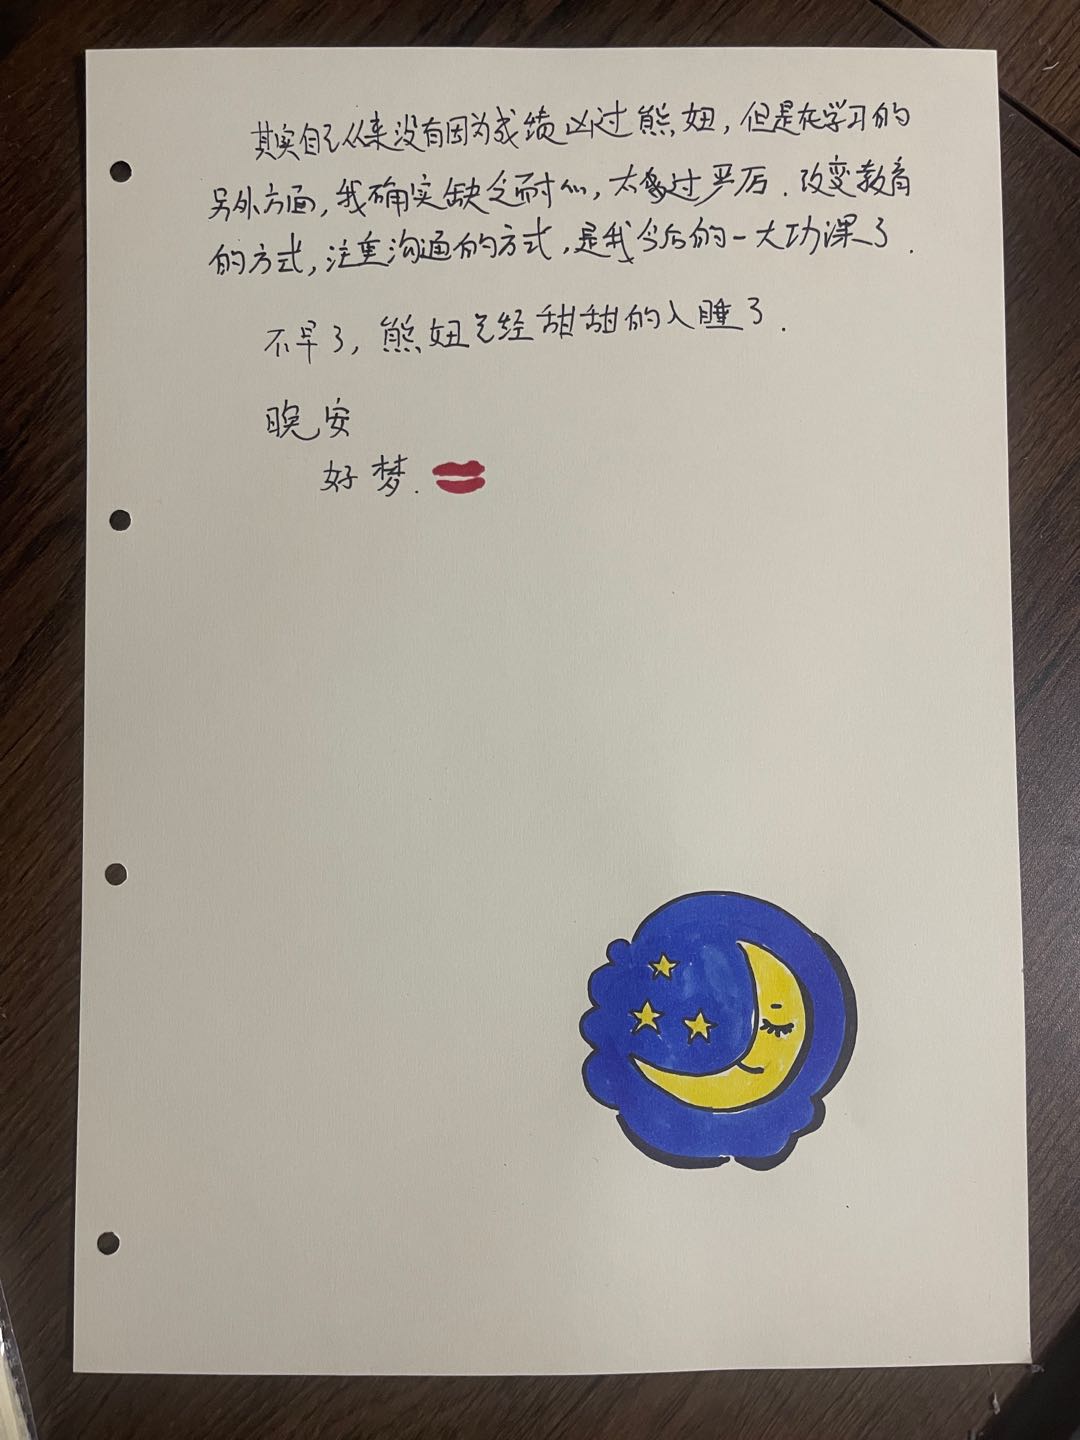 其实自己从来没有因为成绩凶过熊妞，但是在学习的
另外方面，我确实缺乏耐心，太过严厉．改变教育
的方式，注重沟通的方式，是我今后的一大功课了．
不早了，熊妞已经甜甜的入睡了．
晚安
好梦．